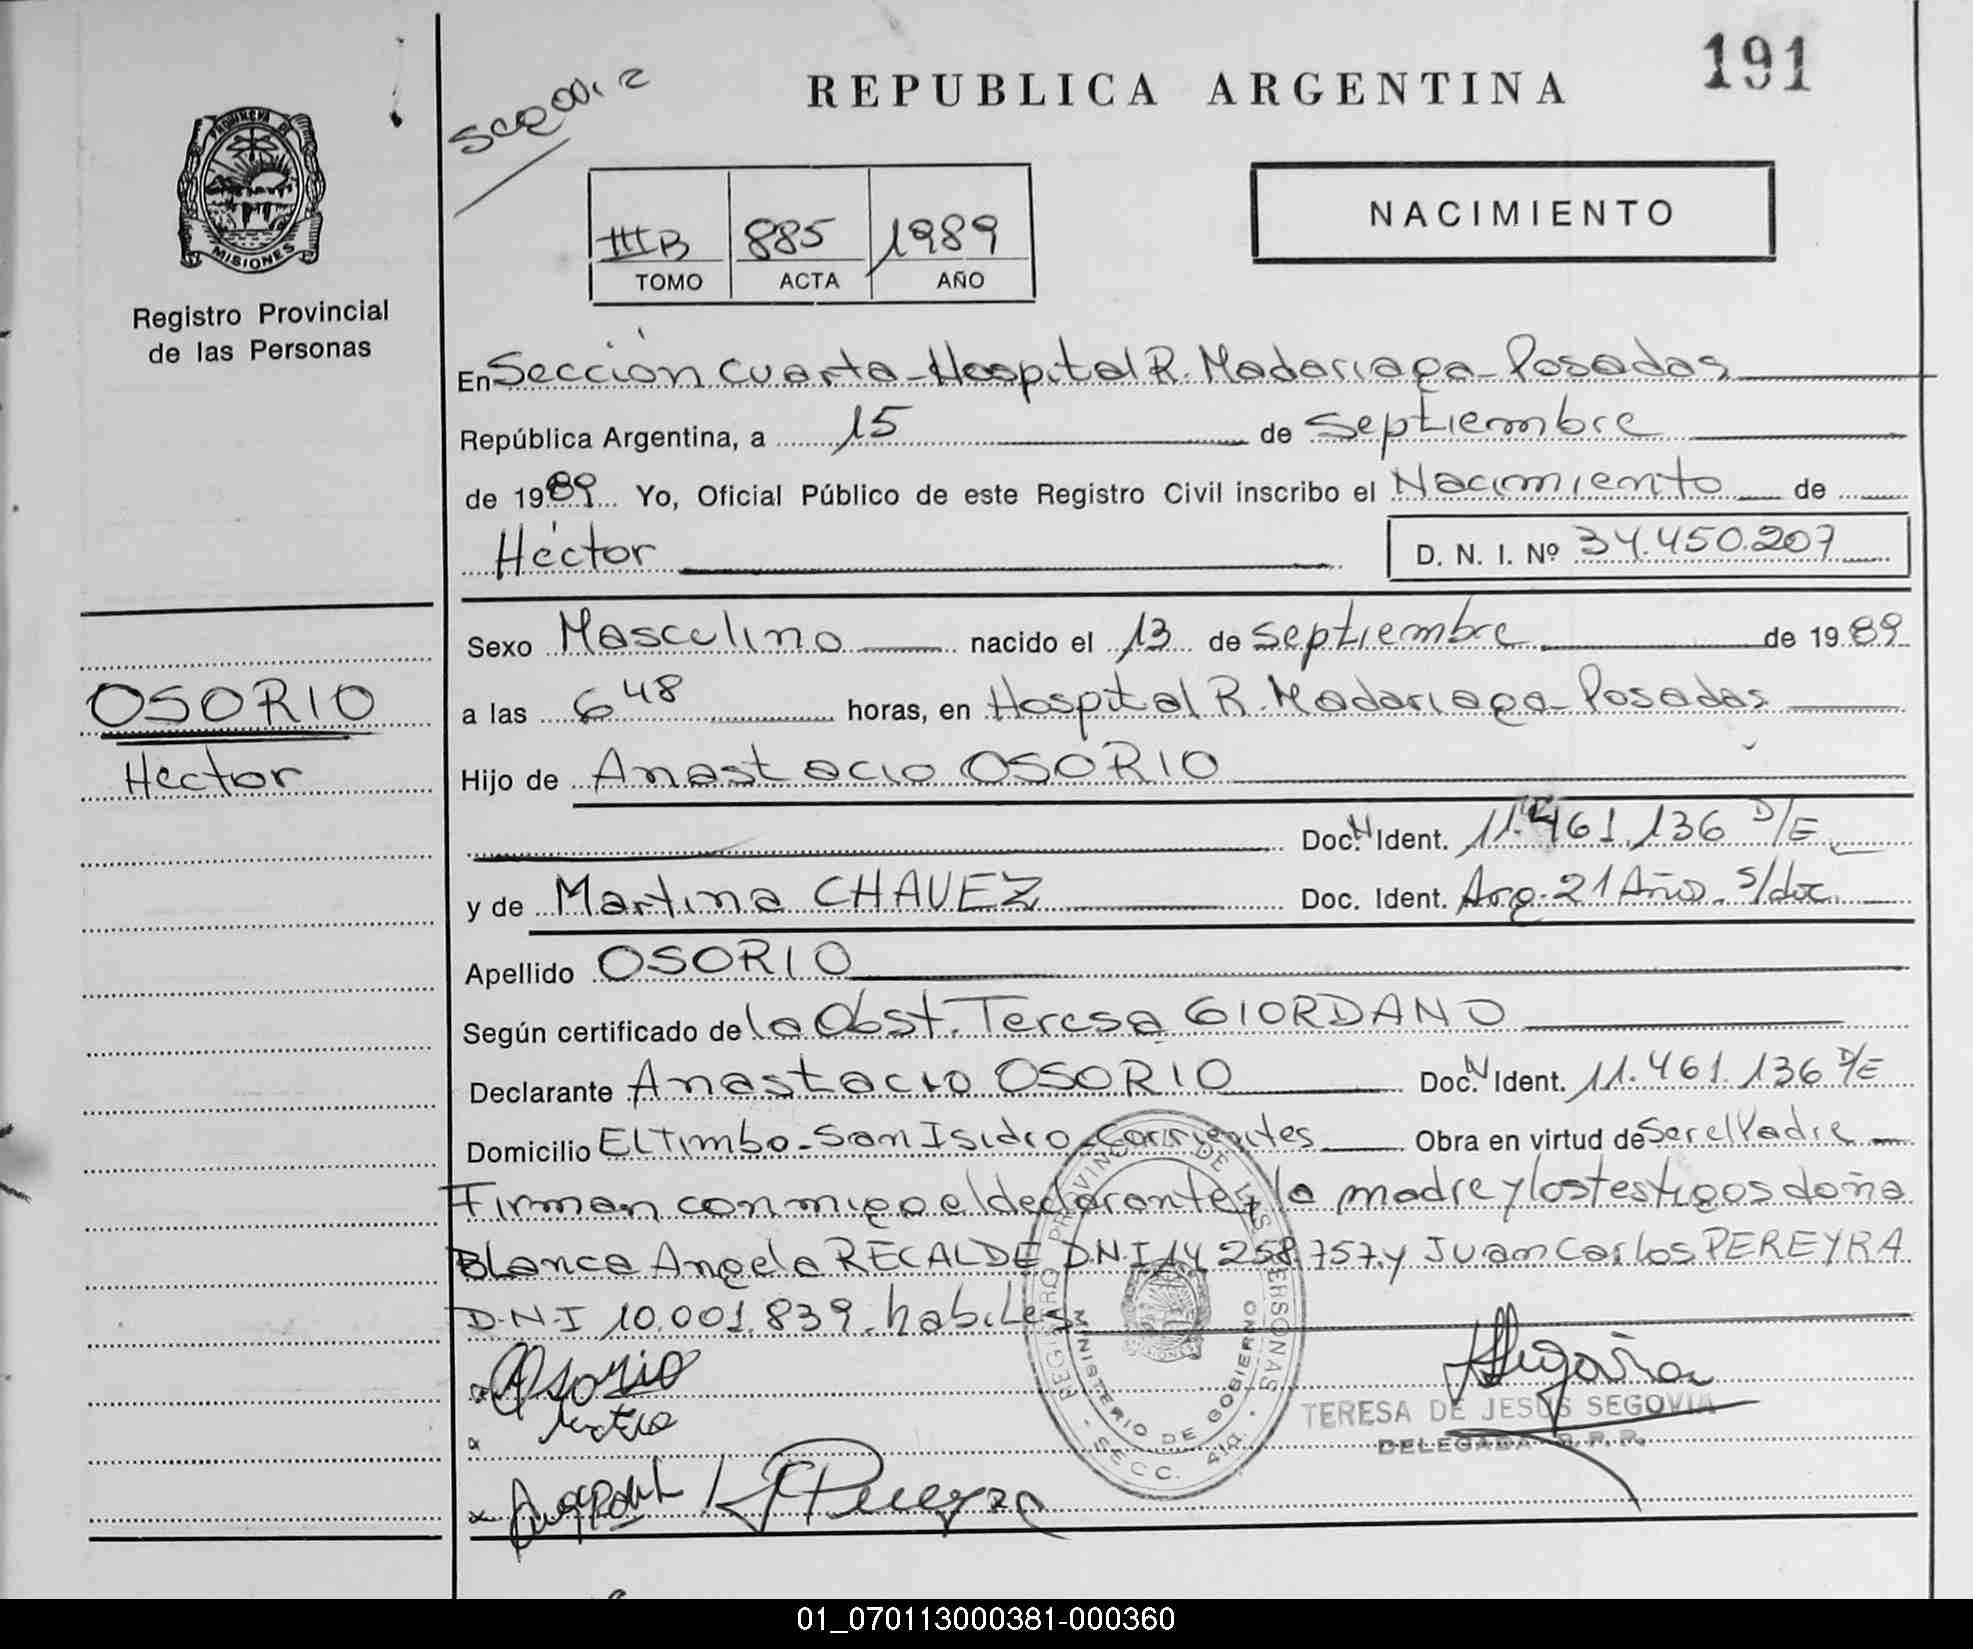 191
REPUBLICA ARGENTINA
NACIMIENTO
IIIB 885 1989
TOMO ACTA AÑO
PROVINCIA DE MISIONES
Registro Provincial
de las Personas
En Sección Cuarta - Hospital R. Madariaga - Posadas
República Argentina, a 15 de Septiembre
de 1989 Yo, Oficial Público de este Registro Civil inscribo el Nacimiento de
Héctor D. N. I. Nº 34.450.207
Sexo Masculino nacido el 13 de Septiembre de 1989
OSORIO
Hector
a las 6 48 horas, en Hospital R. Madariaga - Posadas
Hijo de Anastacio OSORIO
Doc. N Ident. 11.461.136 D/E
y de Martina CHAVEZ Doc. Ident. Arg. 21 Años. s/doc.
Apellido OSORIO
Según certificado de la Obst. Teresa GIORDANO
Declarante Anastacio OSORIO Doc. N Ident. 11.461.136 D/E
Domicilio El Timbo - San Isidro - Corrientes Obra en virtud de Ser el Padre
Firman conmigo el declarante, la madre y los testigos doña
Blanca Angela RECALDE D.N.I 14 258.757. y Juan Carlos PEREYRA
D.N.I 10.001.839. habiles.
REGISTRO PROVINCIAL DE LAS PERSONAS
MINISTERIO DE GOBIERNO
SECC. 4ta.
Osorio
TERESA DE JESUS SEGOVIA
DELEGADA R.P.P.
01_070113000381-000360